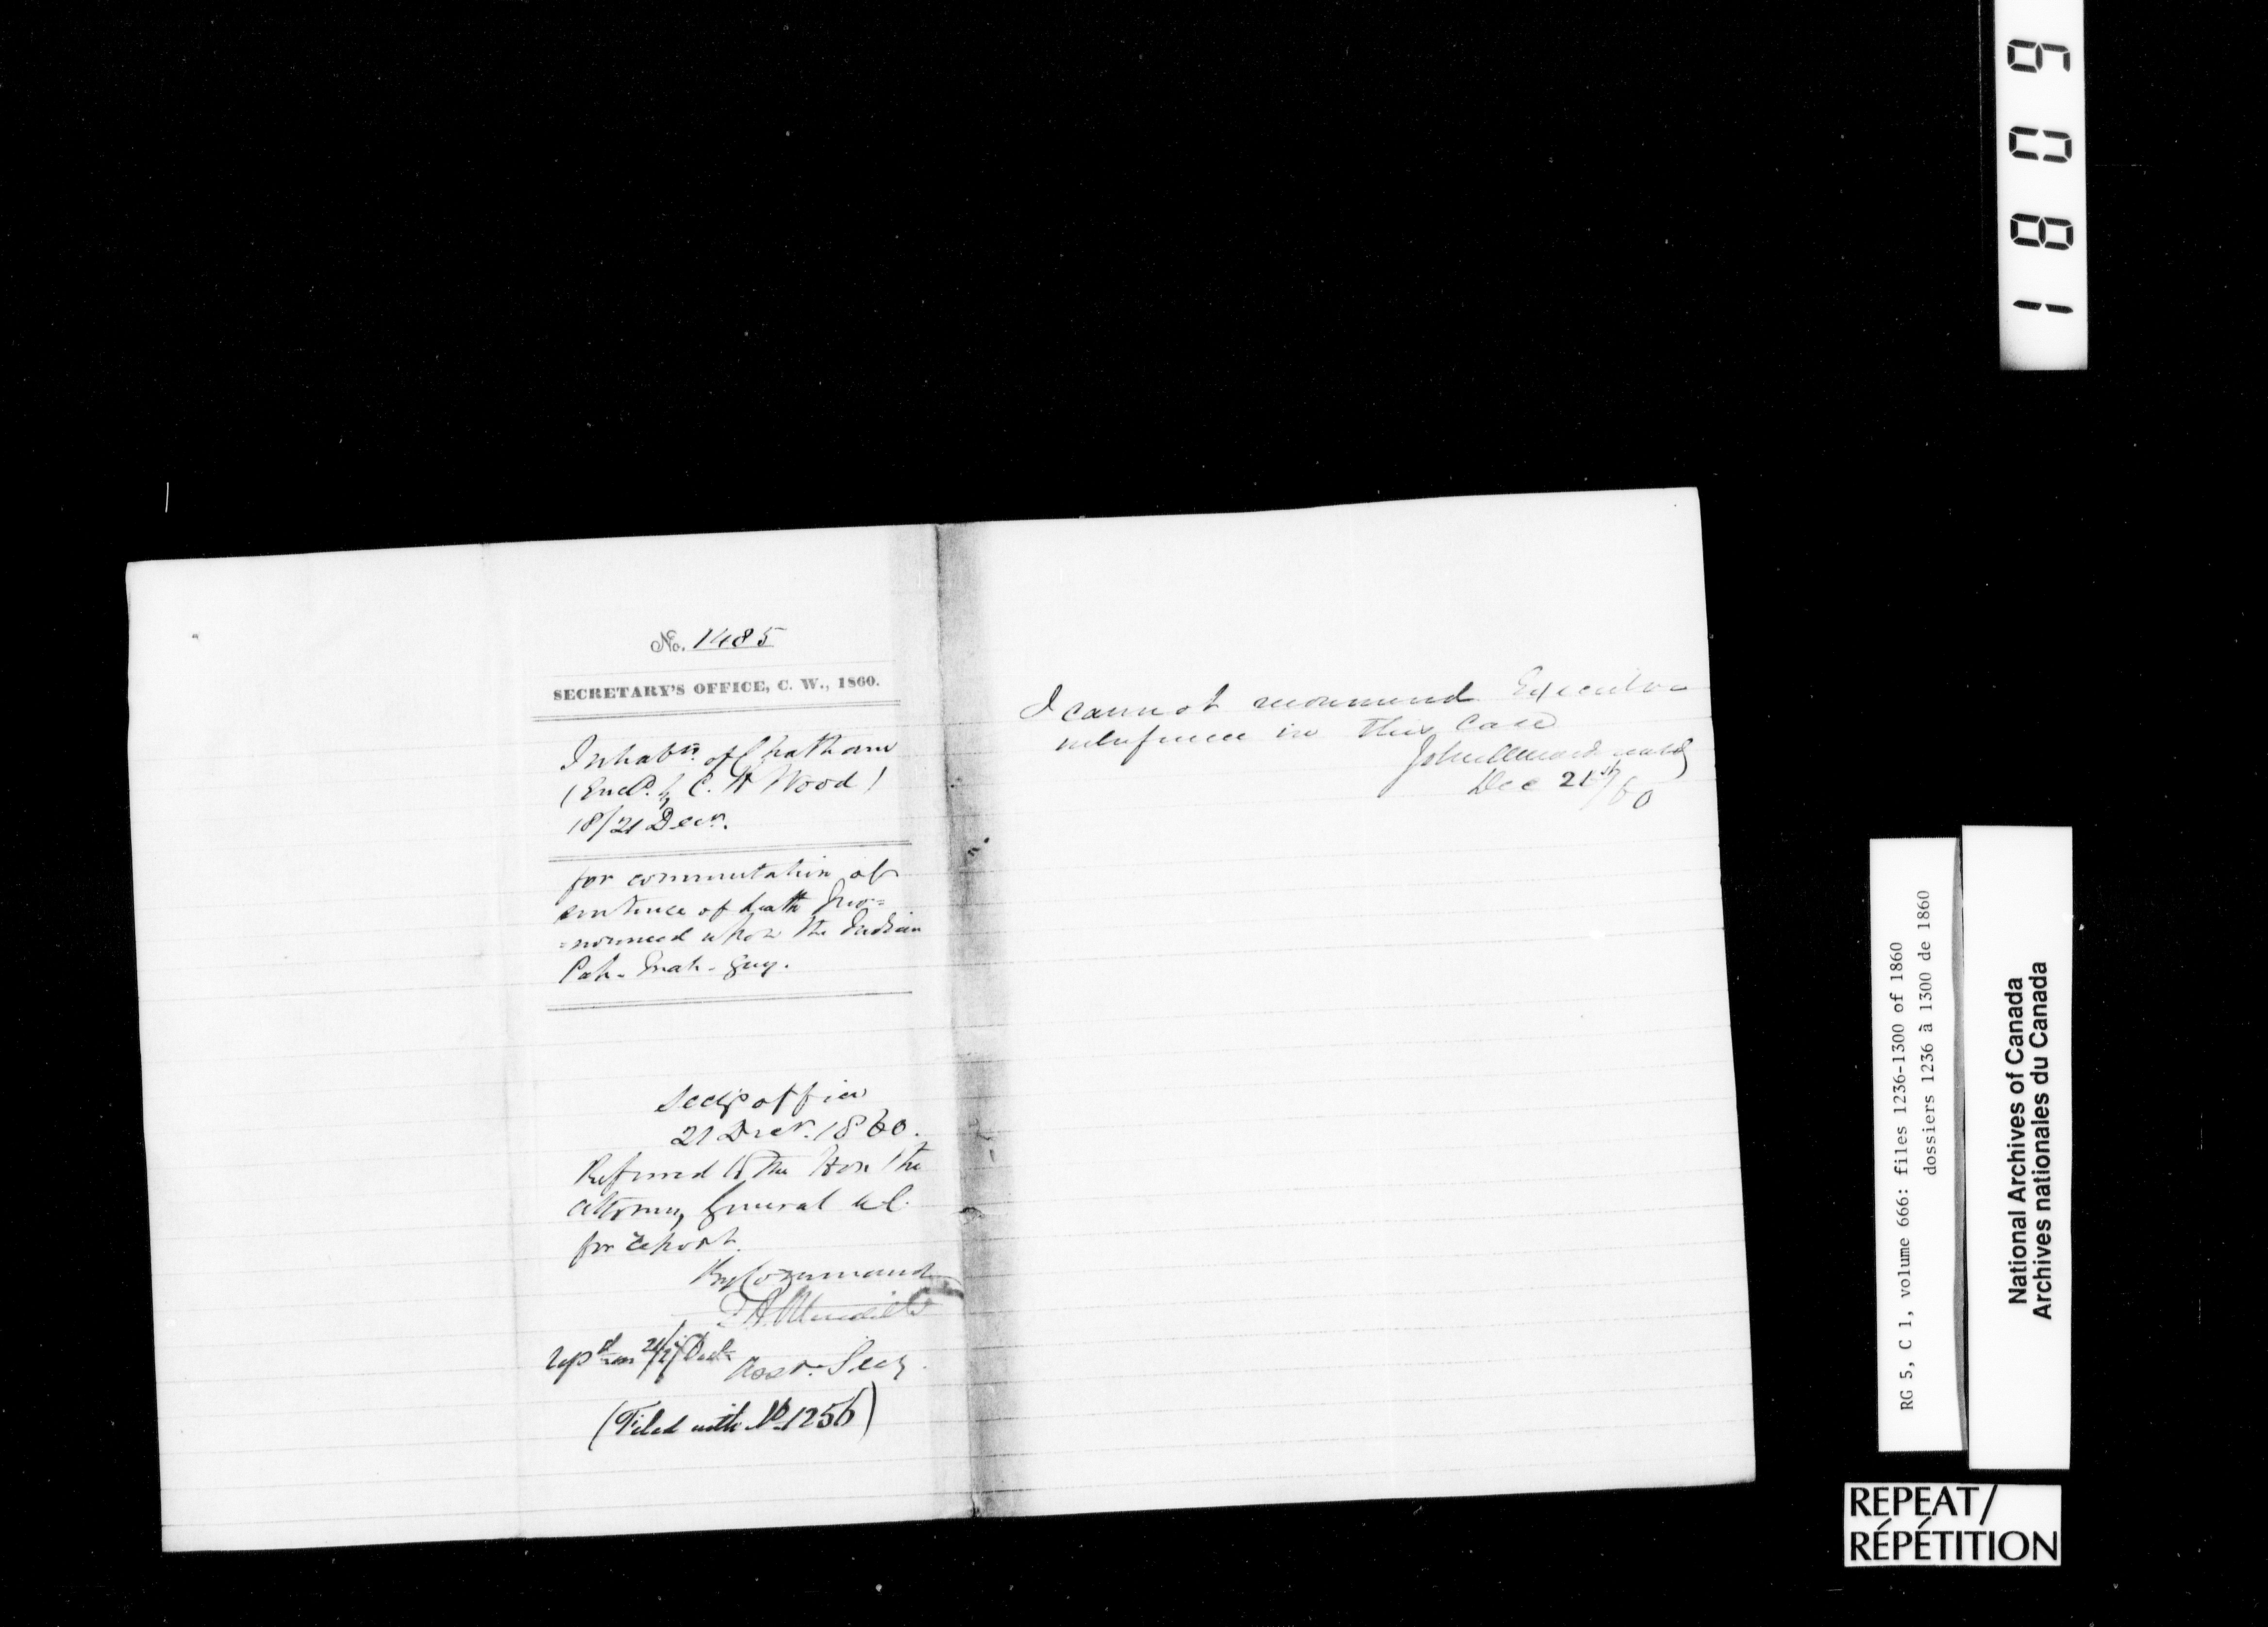 No. 1485
SECRETARY'S OFFICE, C. W., 1860.
Inhabts. of Chatham
(Encd. by C. R Wood)
18/21 Decr.
for commutation of
sentence of death pro=
=nounced upon the Indian
Pah-mah-guy.
Secy's office
21 Decr. 1860.
Referred to the Hon. the
Attorney General U.C.
for report.
By Command
Asst. Secy.
(Filed with No 1256)
I cannot recommend Executive
interference in this case
John A Macdonald
Dec 21st/60
1809
RG 5, C 1, volume 666: files 1236-1300 of 1860
dossiers 1236 à 1300 de 1860
National Archives of Canada
Archives nationales du Canada
REPEAT/
RÉPÉTITION